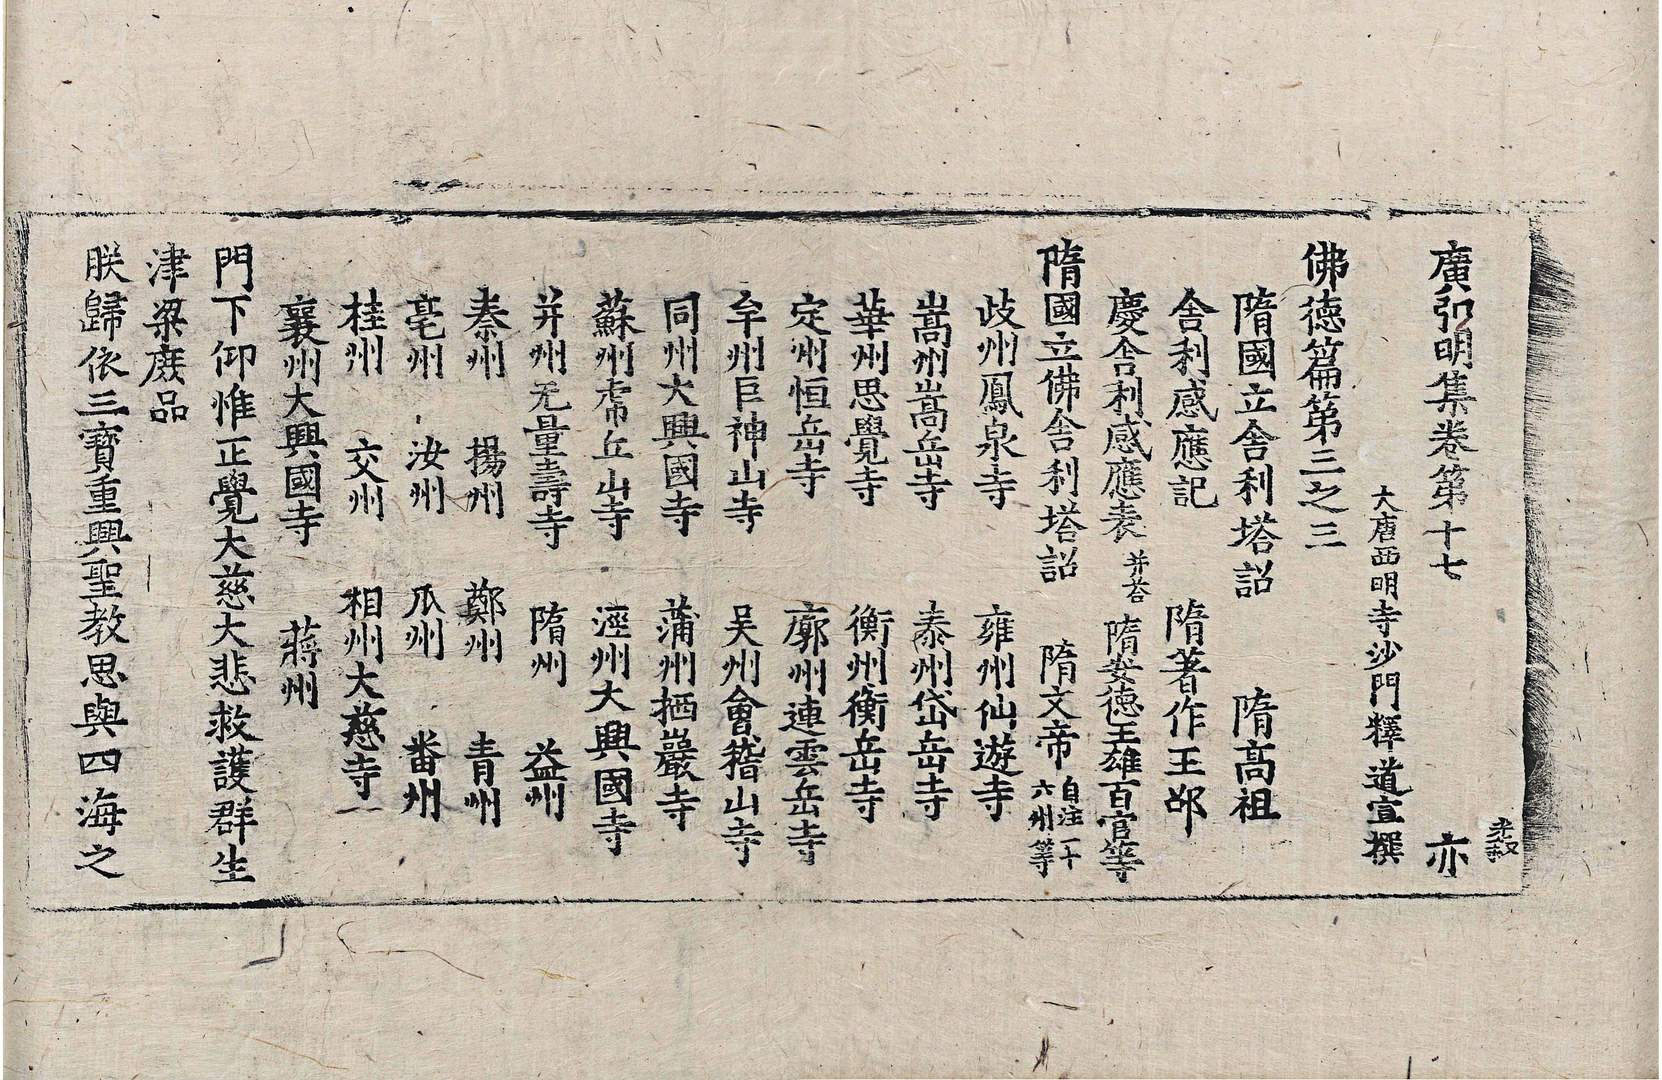 廣弘明集卷第十七 亦
大唐西明寺沙門釋道宣撰
佛德篇第三之三
隋國立舍利塔詔 隋高祖
舍利感應記 隋著作王邵
慶舍利感應表并荅 隋安德王雄百官等
隋國立佛舍利塔詔 隋文帝 自注一十六州等
歧州鳳泉寺 雍州仙遊寺
嵩州嵩岳寺 泰州岱岳寺
華州思覺寺 衡州衡岳寺
定州恒岳寺 廓州連雲岳寺
牟州巨神山寺 吴州會稽山寺
同州大興國寺 蒲州栖巖寺
蘇州虎丘山寺 涇州大興國寺
并州无量壽寺 隋州 益州
秦州 揚州 鄭州 青州
亳州 汝州 瓜州 番州
桂州 交州 相州大慈寺一
襄州大興國寺 蔣州
門下仰惟正覺大慈大悲救護群生
津梁庶品
朕歸依三寶重興聖教思與四海之